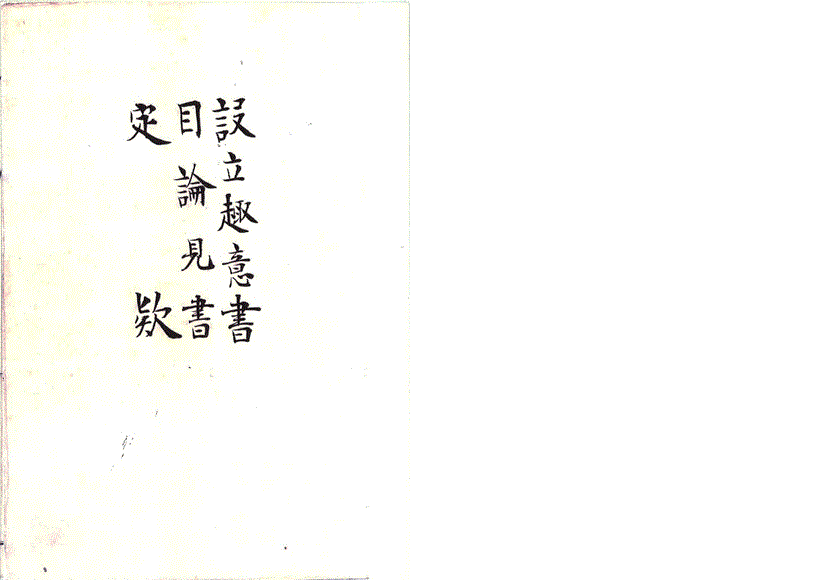 設立趣意書
目論見書
定欵